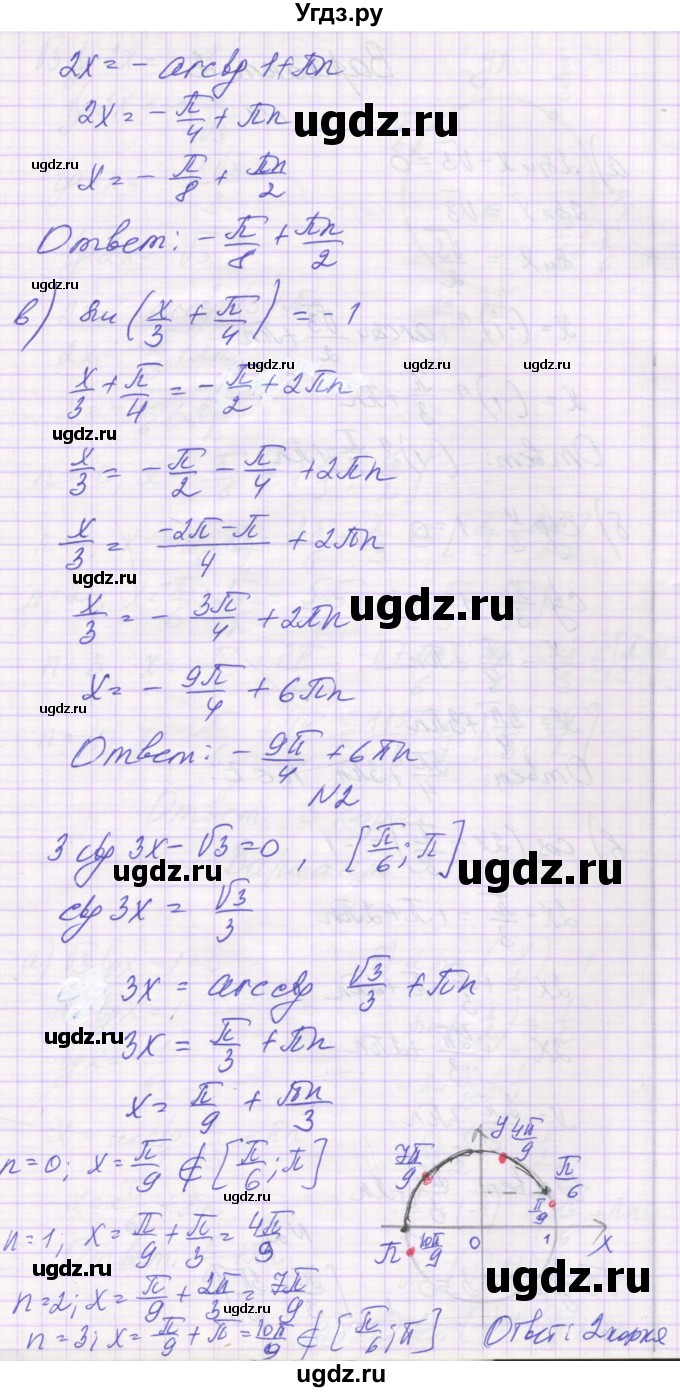 Угдз.ру
2x = - arcctg 1 + πn
2x = - π/4 + πn
ugdz.ru
ugdz.ru
x = - π/8 + πn/2
Ответ: - π/8 + πn/2
ugdz.ru
в) sin (x/3 + π/4) = - 1
ugdz.ru ugdz.ru
x/3 + π/4 = - π/2 + 2πn
ugdz.ru
x/3 = - π/2 - π/4 + 2πn
x/3 = (-2π - π)/4 + 2πn
ugdz.ru
ugdz.ru
x/3 = - 3π/4 + 2πn
x = - 9π/4 + 6πn
ugdz.ru
Ответ: - 9π/4 + 6πn
N2
3 ctg 3x - √3 = 0, [π/6; π]
ugdz.ru ugdz.ru
ctg 3x = √3/3
3x = arcctg √3/3 + πn
ugdz.ru
3x = π/3 + πn
x = π/9 + πn/3
ugdz.ru
n = 0; x = π/9 ∉ [π/6; π]
ugdz.ru
n = 1, x = π/9 + π/3 = 4π/9
ugdz.ru
n = 2; x = π/9 + 2π/3 = 7π/9
n = 3; x = π/9 + π = 10π/9 ∉ [π/6; π]
ugdz.ru
y 4π/9
7π/9
π/6
π/9
π 10π/9 0 1 x
ugdz.ru
Ответ: 2 корня